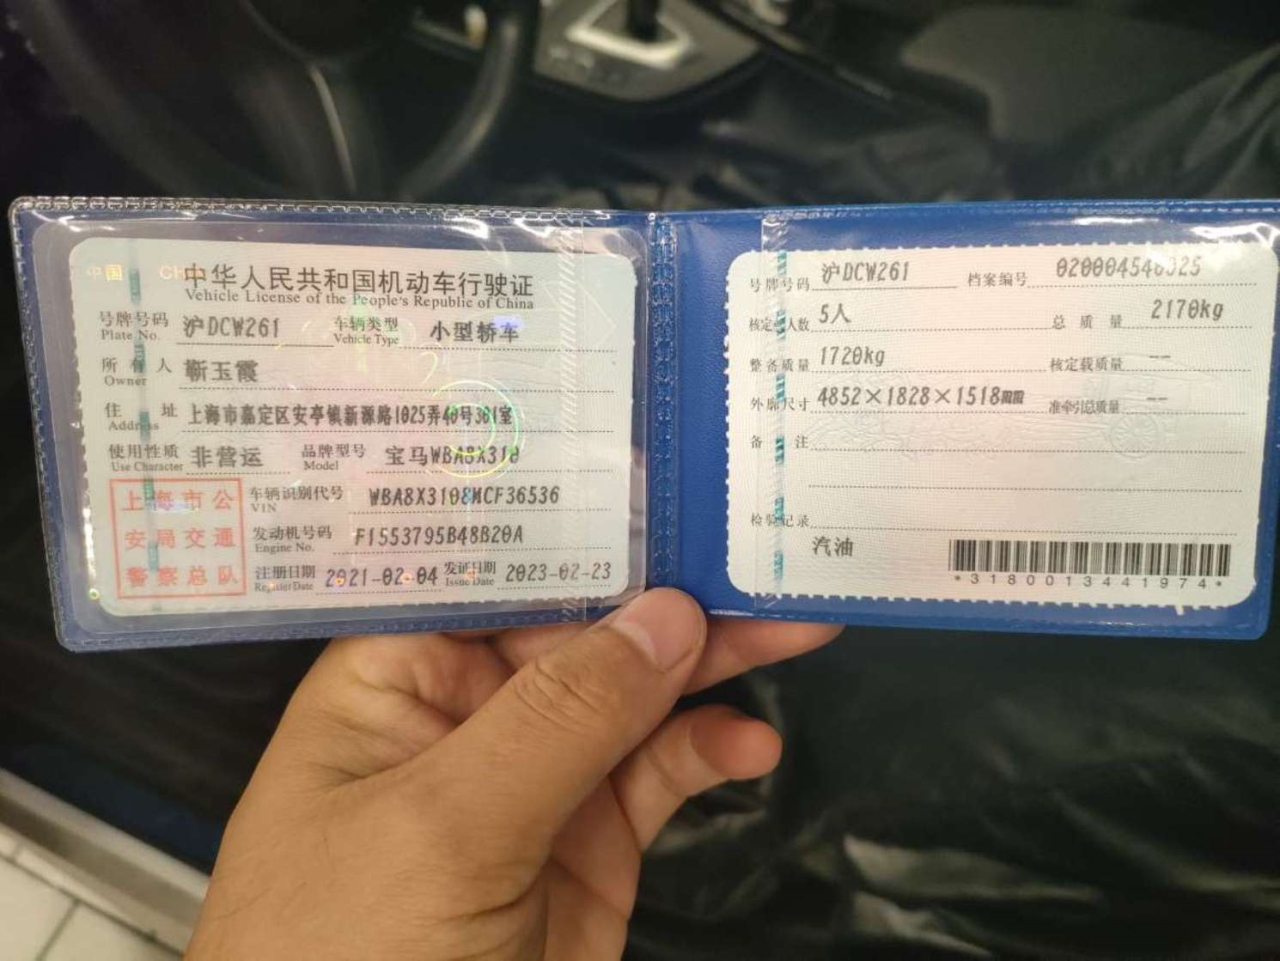 中国 CHI
中华人民共和国机动车行驶证
Vehicle License of the People's Republic of China
号牌号码 沪DCW261 车辆类型 小型轿车
Plate No. Vehicle Type
所有人 靳玉霞
Owner
住址 上海市嘉定区安亭镇新源路1025弄40号301室
Address
使用性质 非营运 品牌型号 宝马WBA8X310
Use Character Model
上海市公
安局交通
警察总队
车辆识别代号 WBA8X3108MCF36536
VIN
发动机号码 F1553795B48B20A
Engine No.
注册日期 2021-02-04 发证日期 2023-02-23
Register Date Issue Date
号牌号码 沪DCW261 档案编号
核定载人数 5人 总质量 2170kg
整备质量 1720kg 核定载质量 --
外廓尺寸 4852×1828×1518mm 准牵引总质量 --
备注
检验记录
汽油
*3180013441974*